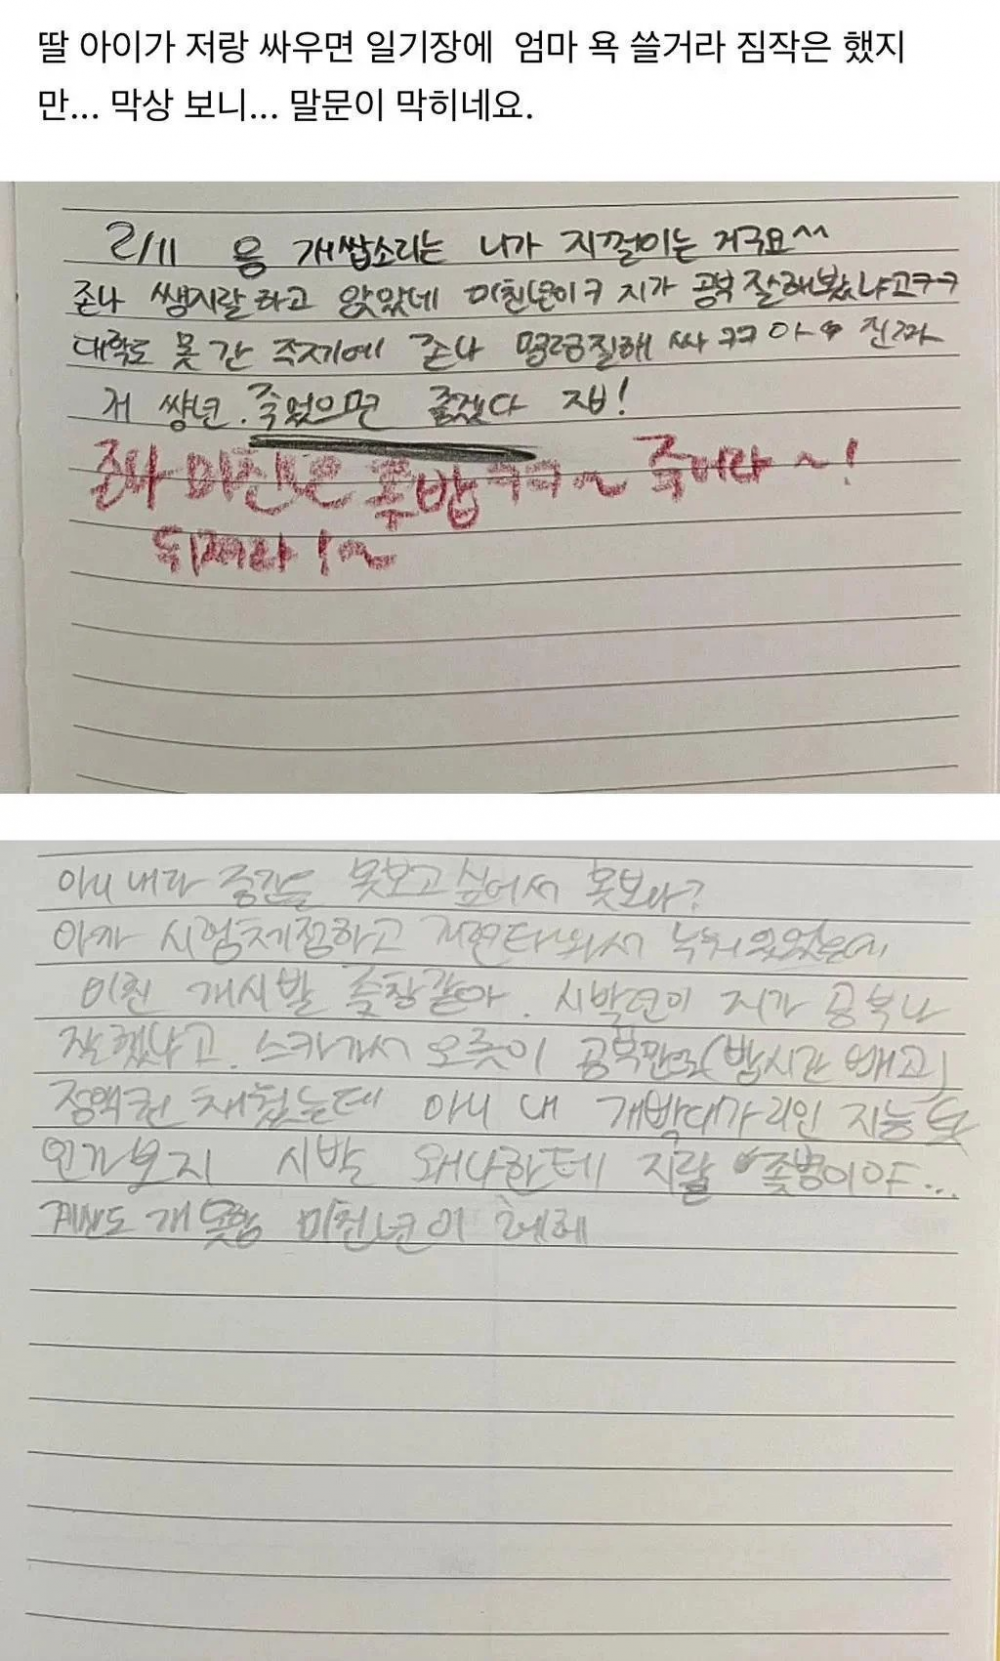 딸 아이가 저랑 싸우면 일기장에 엄마 욕 쓸거라 짐작은 했지
만... 막상 보니... 말문이 막히네요.
2/11 응 개쌉소리는 니가 지껄이는 거구요^^
존나 쌩지랄하고 앉았네 미친년이ㅋ 지가 공부 잘해봤냐고ㅋㅋ
대학도 못 간 주제에 존나 명령질해 싸 ㅋㅋ 아 진짜
저 썅년. 죽었으면 좋겠다 제발!
존나 미친년 좆밥 ㅋㅋ~ 죽어라~!
뒤져라!~
아니 내가 중간을 못보고 싶어서 못보나?
아까 시험체점하고 현타와서 누워있었는데
미친 개시발 좆창같아. 시박년이 지가 공부나
잘했냐고. 스카가서 오롯이 공부만으로(밥시간 빼고)
정액권 채웠는데 아니 내 개빡대가리인 지능
인가보지 시발 왜나한테 지랄 좆병이야...
계산도 개못함 미친년이 헤헤